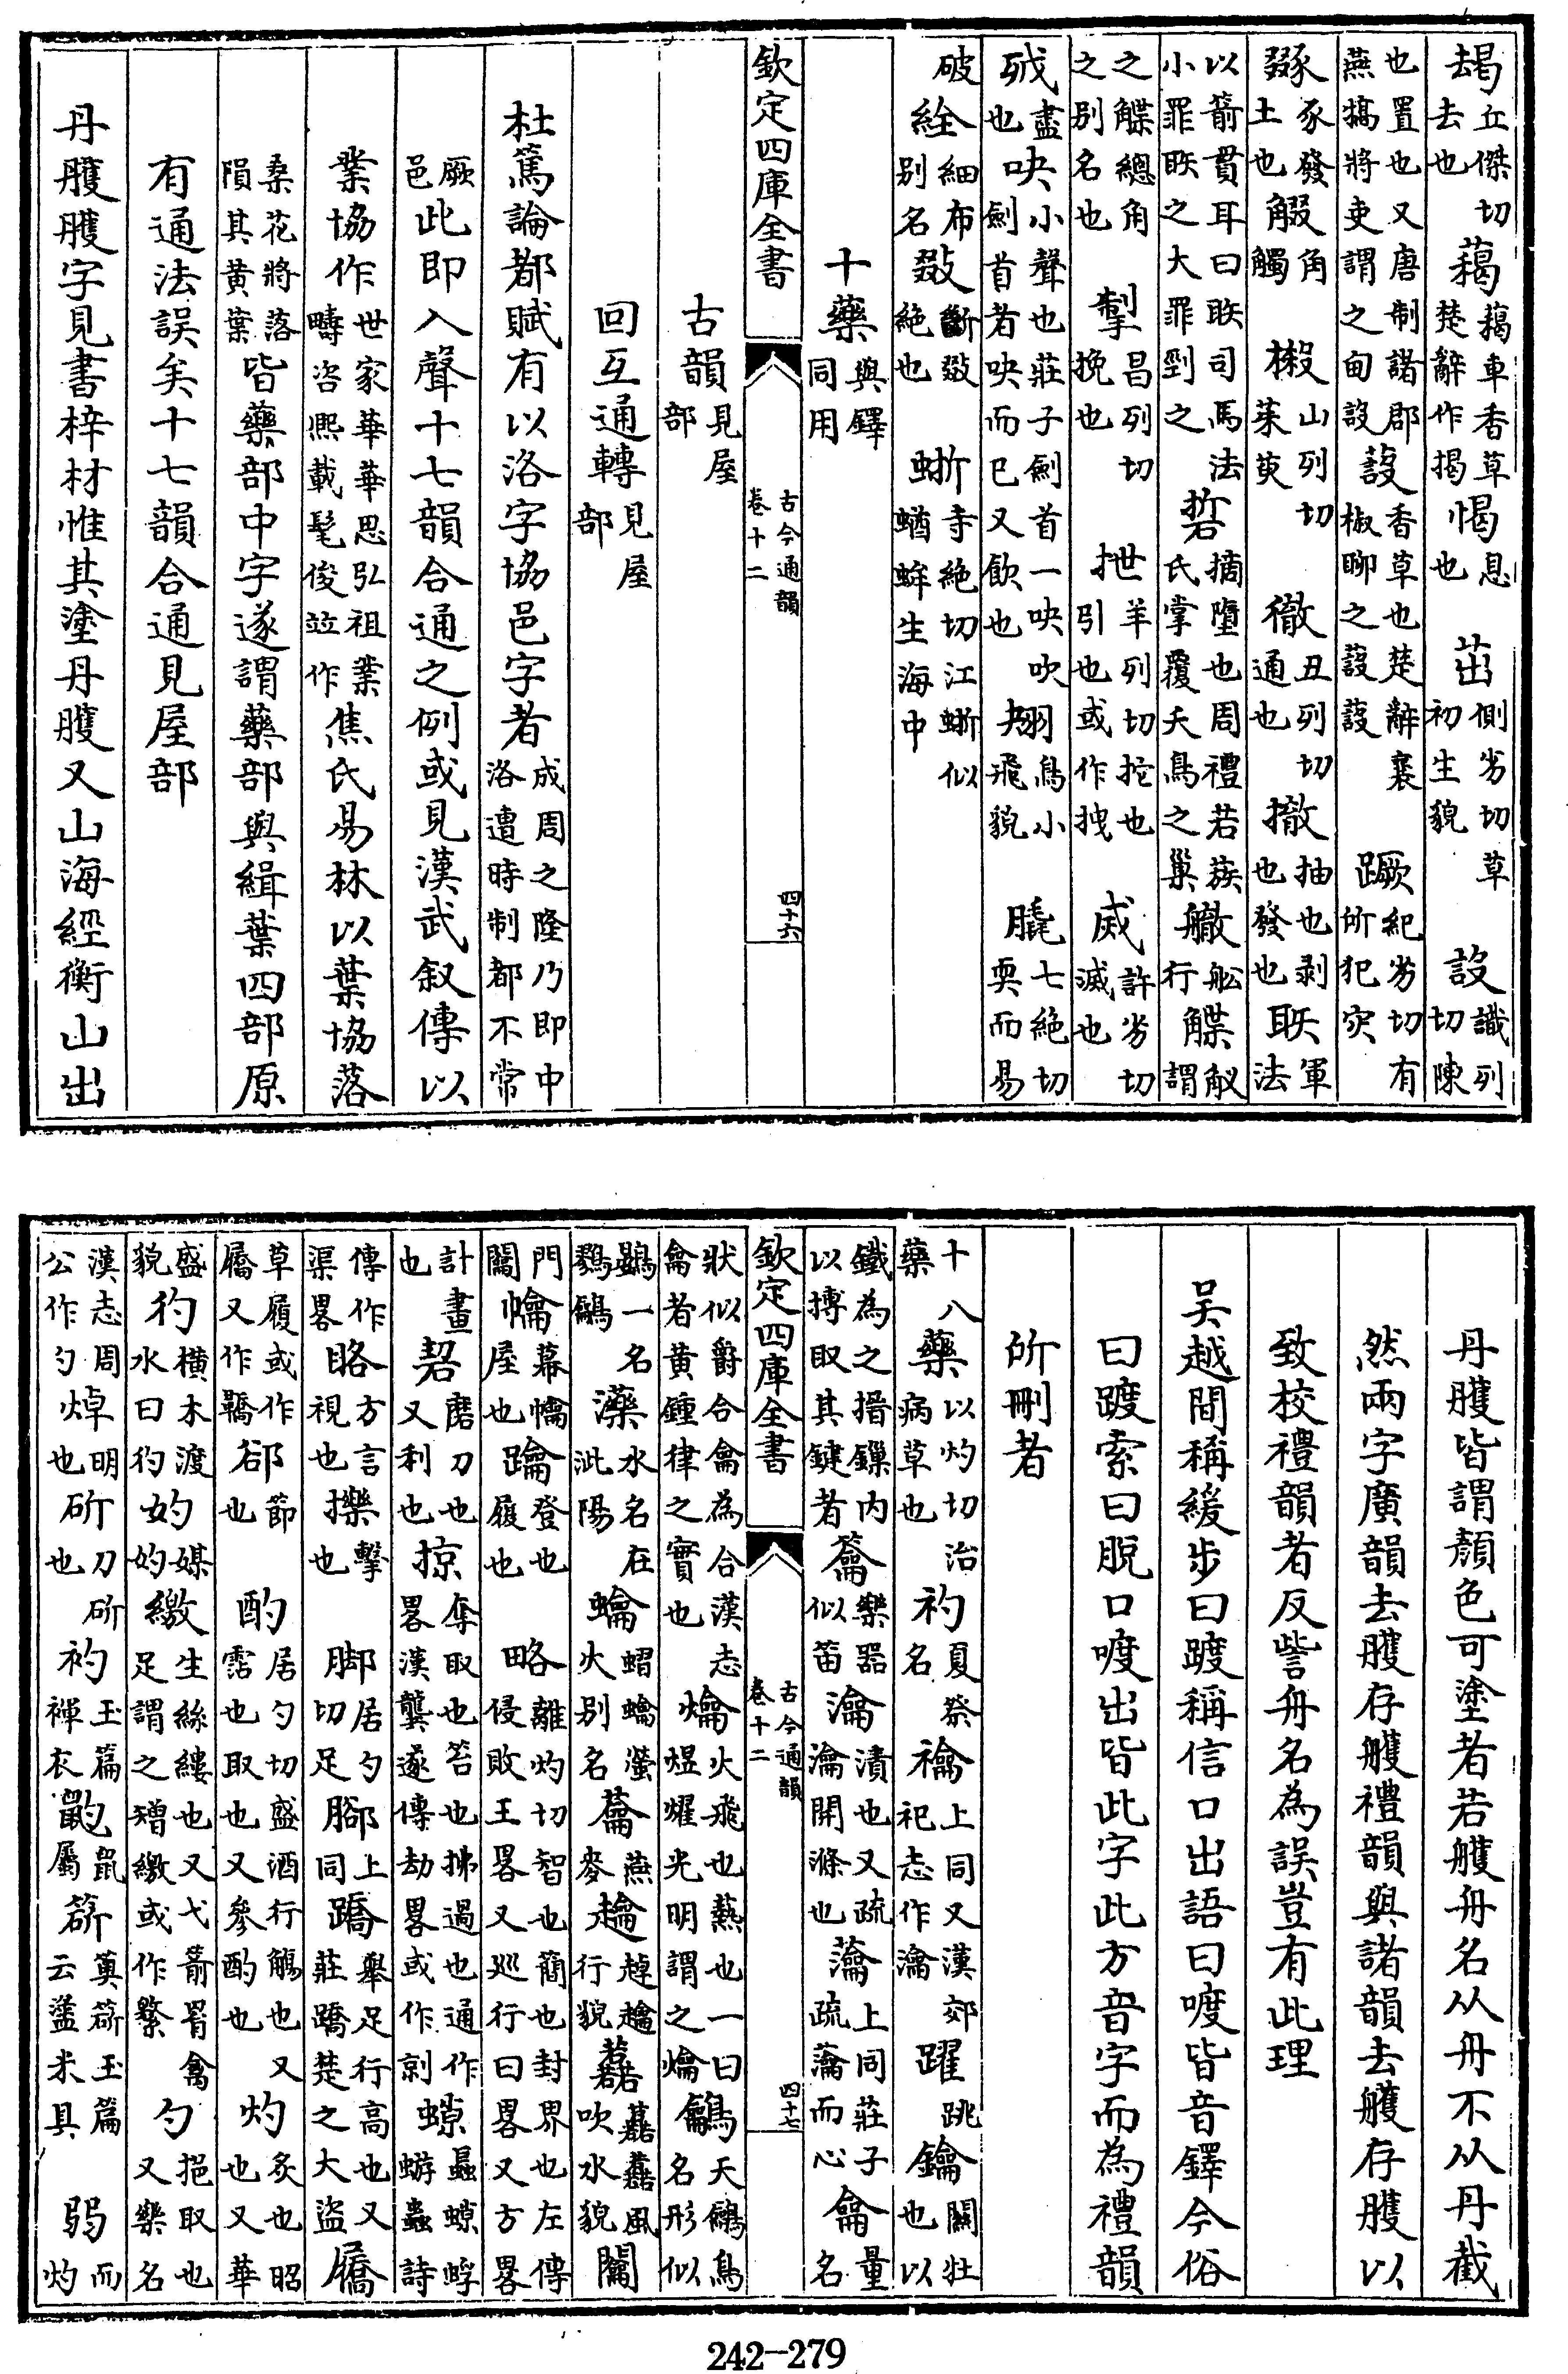 朅丘傑切去也藒藒車香草楚辭作揭愒息也茁側劣切草初生貌設識列切陳
也置也又唐制諸郡燕犒將吏謂之甸設蔎香草也楚辭襄椒聊之蔎蔎蹶紀劣切有所犯灾
豛豕發土也觮角觸樧山列切茱萸徹丑列切通也撤抽也剥也發也聅軍法
以箭貫耳曰聅司馬法小罪聅之大罪剄之硩摘墮也周禮若蔟氏掌覆夭鳥之巢艥舩行觻觓謂
之觻總角之别名也掣昌列切挽也抴羊列切拕也引也或作拽烕許劣切滅也
㱦盡也吷小聲也莊子劍首一吷吹劍首者吷而已又飲也翃鳥小飛貌膬七絶切耎而易
破絟細布别名㕞斷㕞絶也蜥寺絶切江蜥似蝤蛑生海中
十藥與鐸同用
欽定四庫全書 古今通韻卷十二 四十六
古韻見屋部
回互通轉見屋部
杜篤論都賦有以洛字協邑字者成周之隆乃即中洛遭時制都不常
厥邑此即入聲十七韻合通之例或見漢武叙傳以
業協作世家華華思弘祖業疇咨熙載髦俊竝作焦氏易林以葉協落
桑花將落隕其黄葉皆藥部中字遂謂藥部與緝葉四部原
有通法誤矣十七韻合通見屋部
丹雘雘字見書梓材惟其塗丹雘又山海經衡山出
丹雘皆謂顏色可塗者若艧舟名从舟不从丹截
然兩字廣韻去雘存艧禮韻與諸韻去艧存雘以
致校禮韻者反訾舟名為誤豈有此理
吴越間稱緩步曰踱稱信口出語曰喥皆音鐸今俗
曰踱索曰脱口喥出皆此字此方音字而為禮韻
所刪者
十八藥以灼切治病草也礿夏祭名禴上同又漢郊祀志作瀹躍跳鑰關牡也以
鐵為之搢鏁内以摶取其鍵者籥樂器似笛瀹漬也又疏瀹開滌也蘥上同莊子疏蘥而心龠量名
欽定四庫全書 古今通韻卷十二 四十七
狀似爵合龠為合漢志龠者黄鍾律之實也爚火飛也爇也一曰煜爚光明謂之爚鸙天鸙鳥名形似
鷃一名鷚鸙濼水名在泚陽蠮蝐蠮螢火别名蘥燕麥趯趠趯行貌䨼䨼䨼風吹水貌闟
門闟幨幕幨屋也䠯登也履也略離灼切智也簡也封界也左傳侵敗王畧又巡行曰畧又方畧
計畫也䂮磨刀也又利也掠奪取也笞也拂過也通作畧漢龔遂傳劫畧或作剠螰蟲螰蜉蝣蟲詩
傳作渠畧䀩方言視也擽擊也脚居勺切足腳上同蹻舉足行高也又莊蹻楚之大盜屩
草履或作屩又作鞽郤節也酌居勺切盛酒行觴也霑也取也又參酌也灼炙也昭也又華
盛貌彴横木渡水曰彴妁媒妁繳生絲縷也又弋箭罥禽足謂之矰繳或作繁勺挹取也又樂名
漢志周公作勺焯明也斫刀斫也袀玉篇襌衣鼩鼠屬箹蒖箹玉篇云盪米具弱而灼
242-279